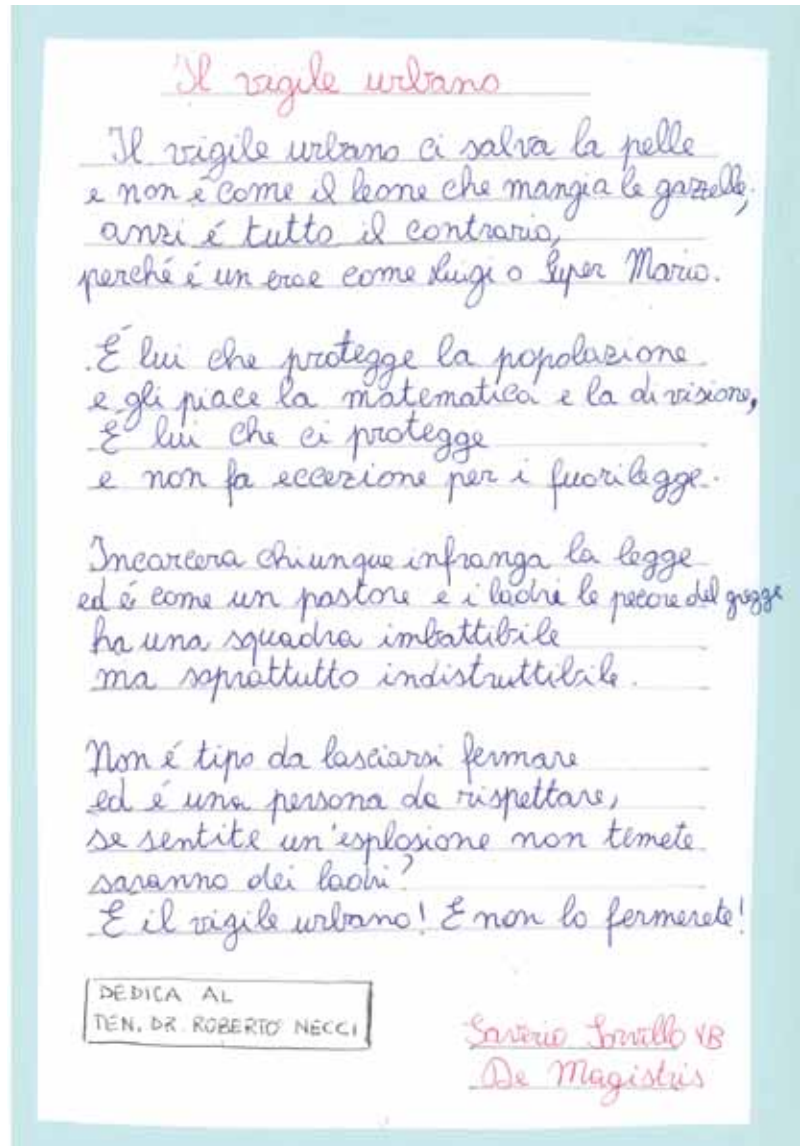 Il vigile urbano
Il vigile urbano ci salva la pelle
e non é come il leone che mangia le gazzelle,
anzi é tutto il contrario,
perché é un eroe come Luigi o Super Mario.
É lui che protegge la popolazione
e gli piace la matematica e la divisione,
É lui che ci protegge
e non fa eccezione per i fuorilegge.
Incarcera chiunque infranga la legge
ed é come un pastore e i ladri le pecore del gregge
ha una squadra imbattibile
ma soprattutto indistruttibile.
Non é tipo da lasciarsi fermare
ed é una persona da rispettare,
se sentite un'esplosione non temete
saranno dei ladri?
E il vigile urbano! E non lo fermerete!
DEDICA AL
TEN. DR. ROBERTO NECCI
Saverio VB
De Magistris